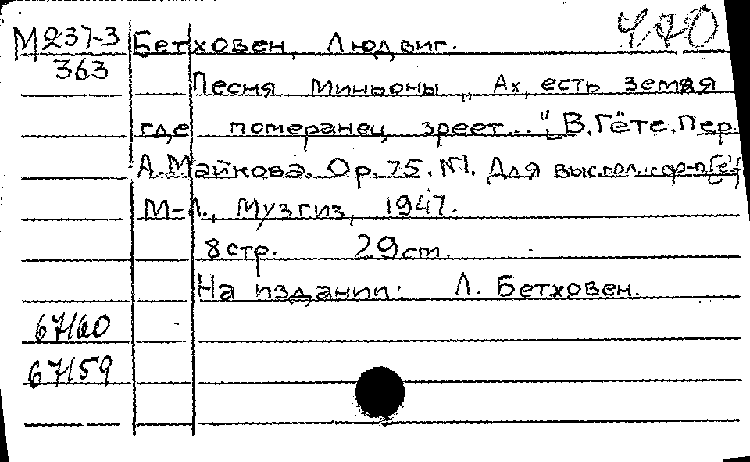 470
М237-3 Бетховен, Людвиг.
363
Песня Миньоны „Ах, есть земля
где померанец зреет..." В. Гёте. Пер.
А. Майкова. Ор. 75. №1. Для выс. гол. и ф-п [e]
М-Л., Музгиз, 1947.
8 стр. 29 cm.
На издании: Л. Бетховен.
67160
67159